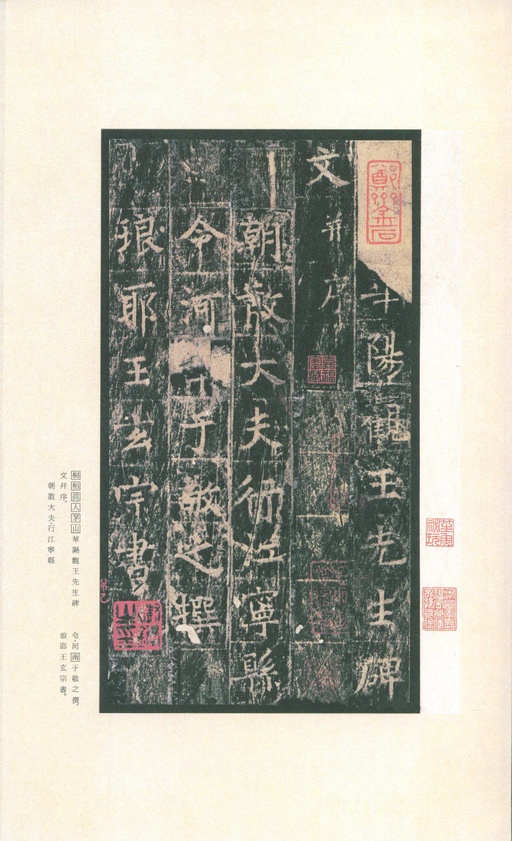 鄭齋金石
陽觀王先生碑
文并序
朝散大夫行江寧縣
令河南于敬之撰
琅耶王玄宗書
桐栢眞人茅山華陽觀王先生碑
文幷序。
朝散大夫行江寧縣
令河南于敬之撰。
琅耶王玄宗書。